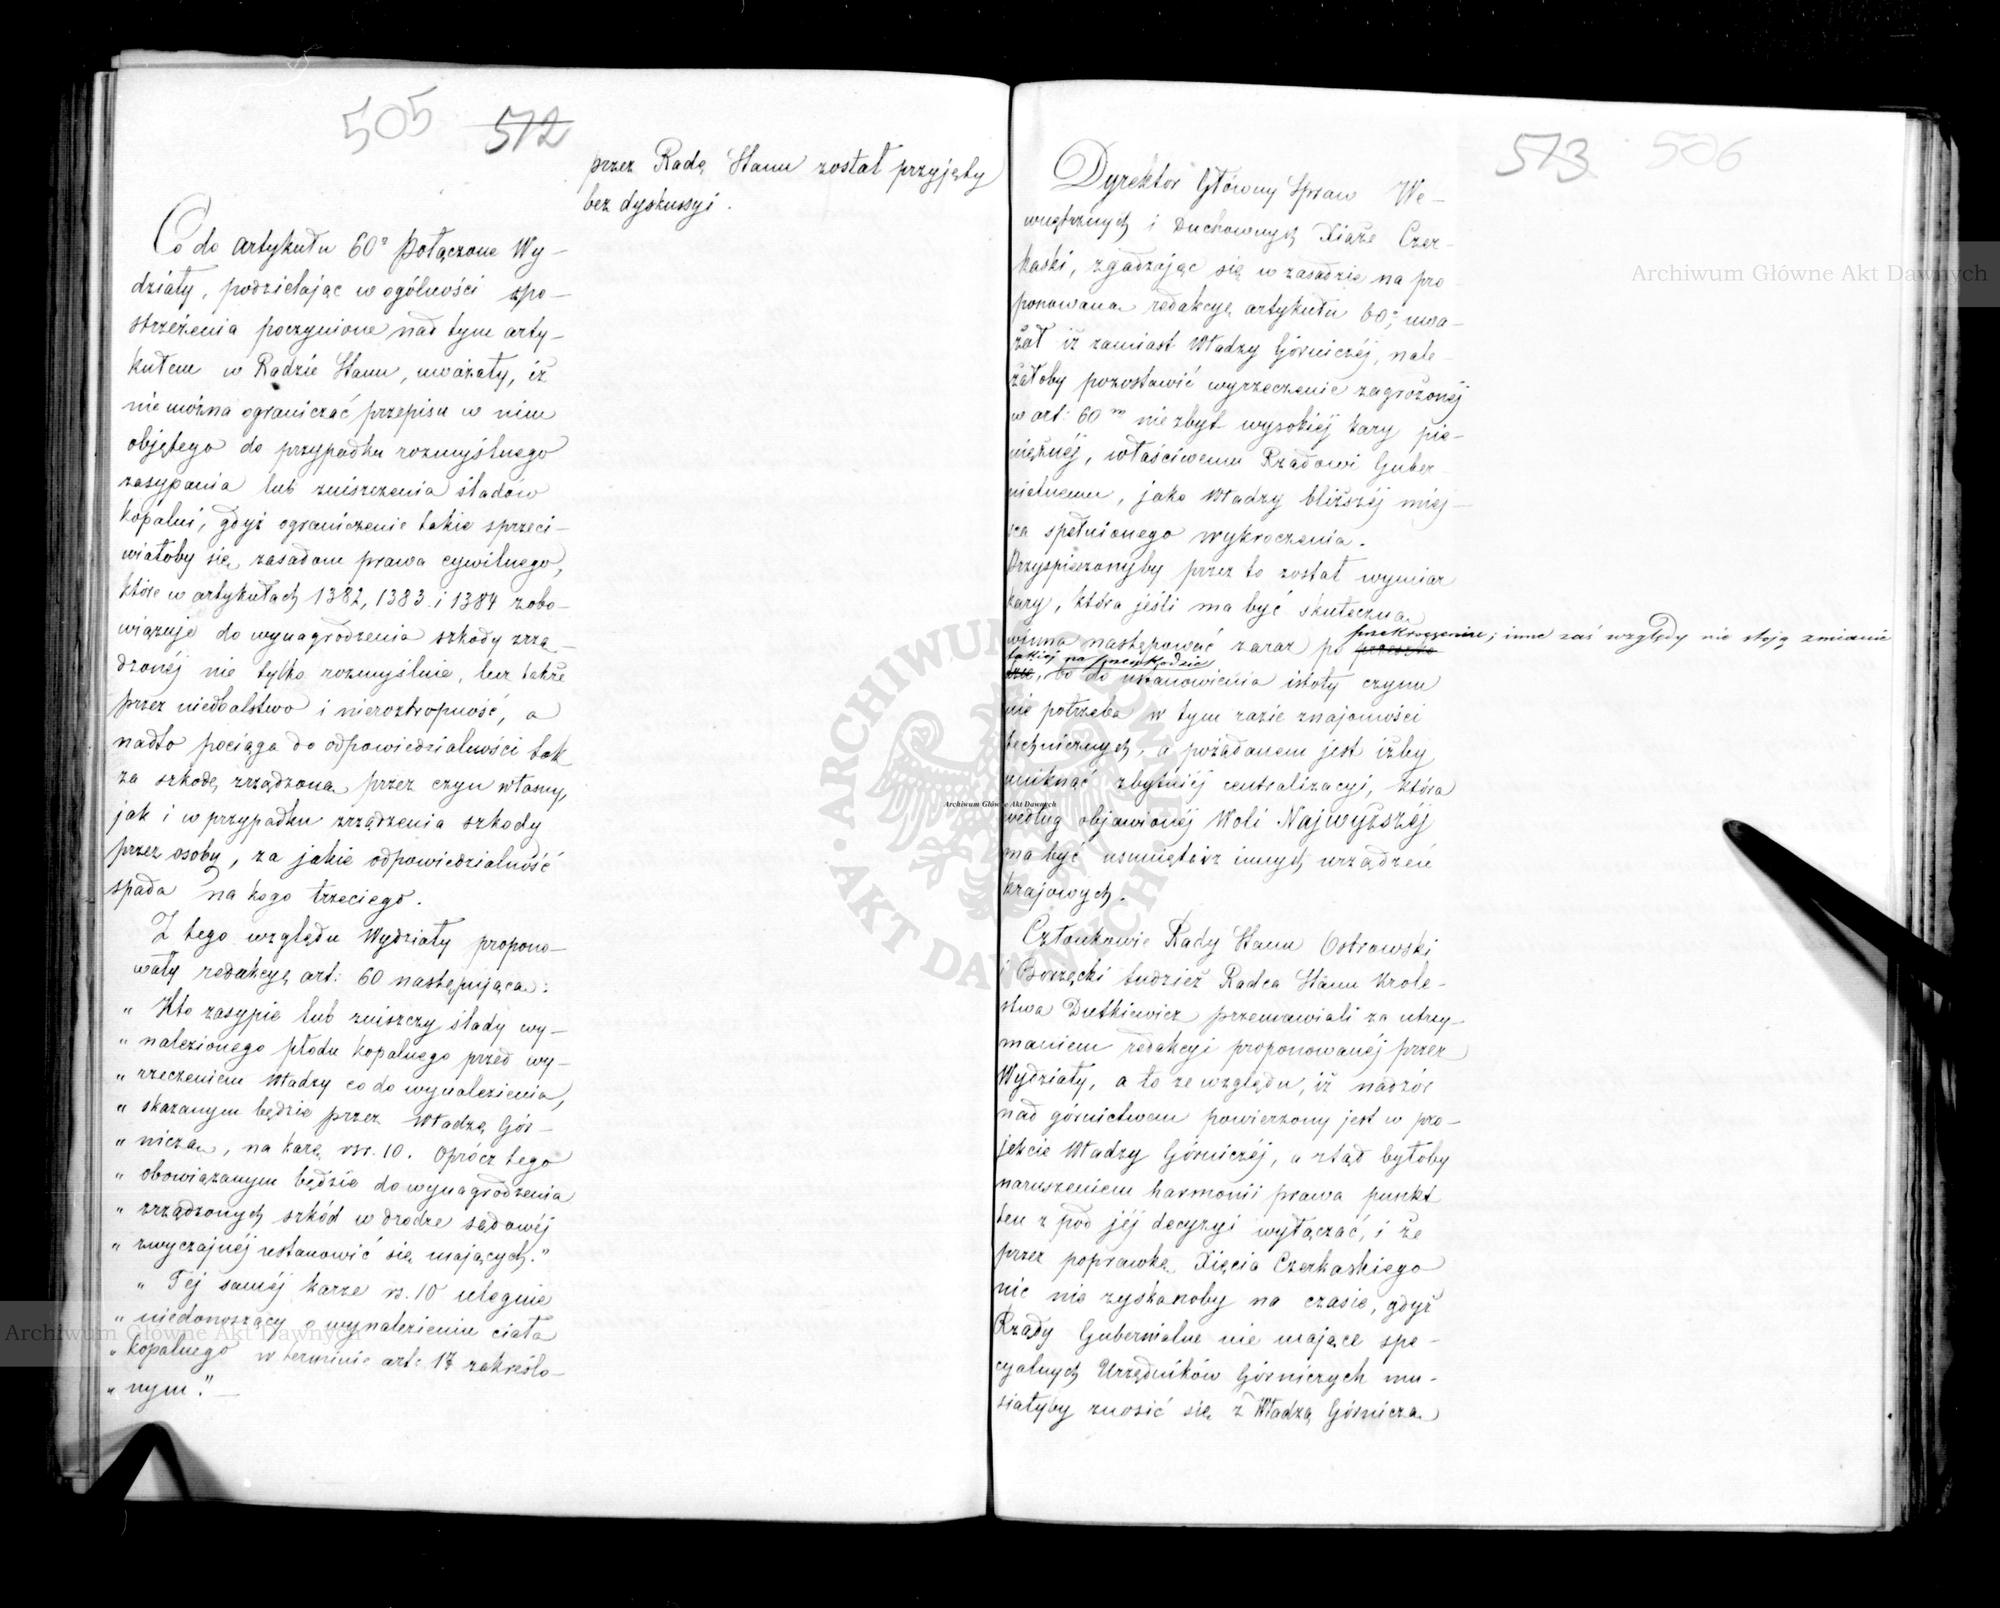 505 572
przez Radę Stanu został przyjęty
bez dyskussyi.
Co do artykułu 60º Połączone Wy-
działy, podzielając w ogólności spo-
strzeżenia poczynione nad tym arty-
kułem w Radzie Stanu, uważały, iż
nie można ograniczać przepisu w nim
objętego do przypadku rozmyślnego
zasypania lub zniszczenia śladów
kopalni, gdyż ograniczenie takie sprzeci-
wiałoby się zasadom prawa cywilnego,
które w artykułach 1382, 1383 i 1384 zobo-
wiązuje do wynagrodzenia szkody zrzą-
dzonéj nie tylko rozmyślnie, lecz także
przez niedbalstwo i nieroztropność, a
nadto pociąga do odpowiedzialności tak
za szkodę zrządzoną przez czyn własny,
jak i w przypadku zrządzenia szkody
przez osoby, za jakie odpowiedzialność
spada na kogo trzeciego.
Z tego względu Wydziały propono-
wały redakcyę art: 60 następującą:
„ Kto zasypie lub zniszczy ślady wy-
„ nalezionego płodu kopalnego przed wy-
„ rzeczeniem Władzy co do wynalezienia,
„ skazanym będzie przez Władzę Gór-
„ niczą, na karę rsr. 10. Oprócz tego
„ obowiązanym będzie do wynagrodzenia
„ zrządzonych szkód w drodze sądowéj
„ zwyczajnéj ustanowić się mających."
„ Téj saméj karze rs. 10 ulegnie
„ niedonoszący o wynalezieniu ciała
„ kopalnego w terminie art: 17 zakreślo-
„ nym."
573 506
Dyrektor Główny Spraw We-
wnętrznych i Duchownych Xiąże Czer-
kaski, zgadzając się w zasadzie na pro-
ponowaną redakcyę artykułu 60º, uwa-
żał iż zamiast Władzy Górniczéj, nale-
żałoby pozostawić wyrzeczenie zagrożonéj
w art: 60m niezbyt wysokiéj kary pie-
niężnéj, właściwemu Rządowi Guber-
nialnemu, jako Władzy bliższéj miej-
sca spełnionego wykroczenia.
Przyspieszonyby przez to został wymiar
kary, która jeśli ma być skuteczną
winna następować zaraz po przekroczeniu; inne zaś względy nie stoją zmianie
takiéj na przeszkodzie
, bo do ustanowienia istoty czynu
nie potrzeba w tym razie znajomości
technicznych, a pożądanem jest iżby
uniknąć zbytniéj centralizacyi, która
według objawionéj Woli Najwyższéj
ma być usunięta z innych urządzeń
krajowych.
Członkowie Rady Stanu Ostrowski
i Borzęcki tudzież Radca Stanu Króle-
stwa Dutkiewicz przemawiali za utrzy-
maniem redakcyi proponowanéj przez
Wydziały, a to ze względu, iż nadzór
nad górnictwem powierzony jest w pro-
jekcie Władzy Górniczéj, a ztąd byłoby
naruszeniem harmonii prawa punkt
ten z pod jéj decyzyi wyłączać, i że
przez poprawkę Xięcia Czerkaskiego
nic nie zyskanoby na czasie, gdyż
Rządy Gubernialne nie mające spe-
cyalnych Urzędników Górniczych mu-
siałyby znosić się z Władzą Górniczą
Archiwum Główne Akt Dawnych
Archiwum Główne Akt Dawnych
Archiwum Główne Akt Dawnych
ARCHIWUM GŁÓWNE AKT DAWNYCH